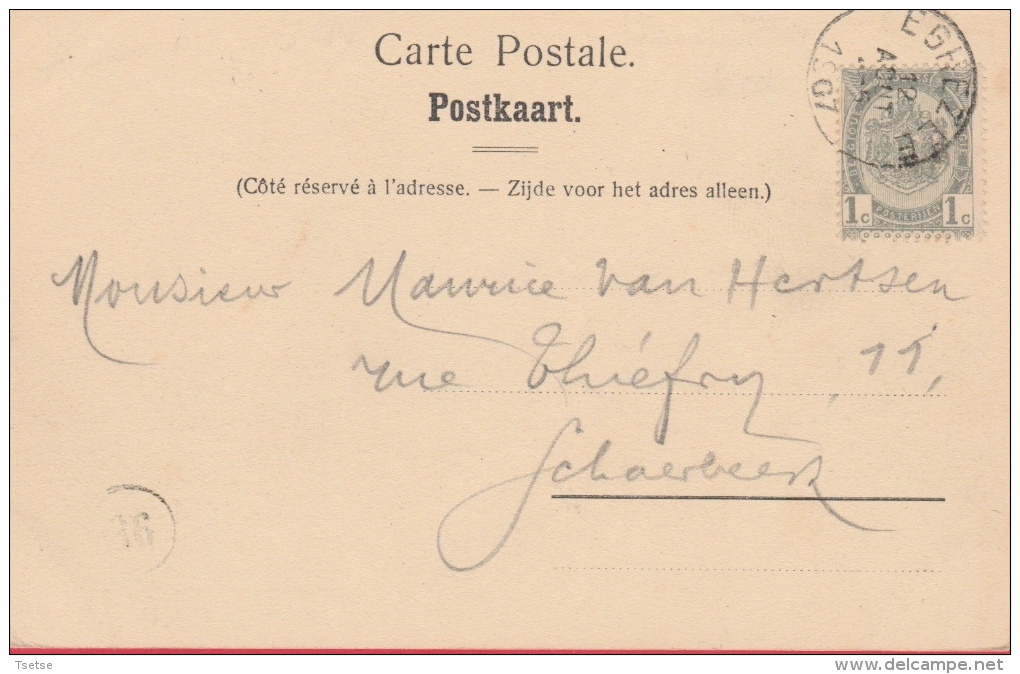 Carte Postale.
Postkaart.
(Côté réservé à l'adresse. — Zijde voor het adres alleen.)
EGHEZ
12
AOUT
1907
BELGIQUE
POSTERIJEN
1c 1c
Monsieur Maurice Van Hertsen
rue Thiéfry, 11,
Schaerbeek
Tsetse
www.delcampe.net